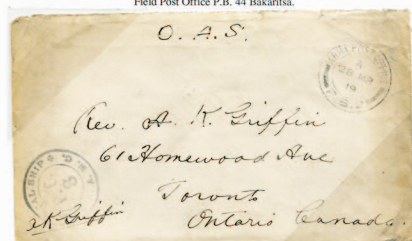 Field Post Office P.B. 44 Bakaritsa.
O. A. S.
Rev. A. K. Griffin
61 Homewood Ave
Toronto
Ontario Canada.
K Griffin